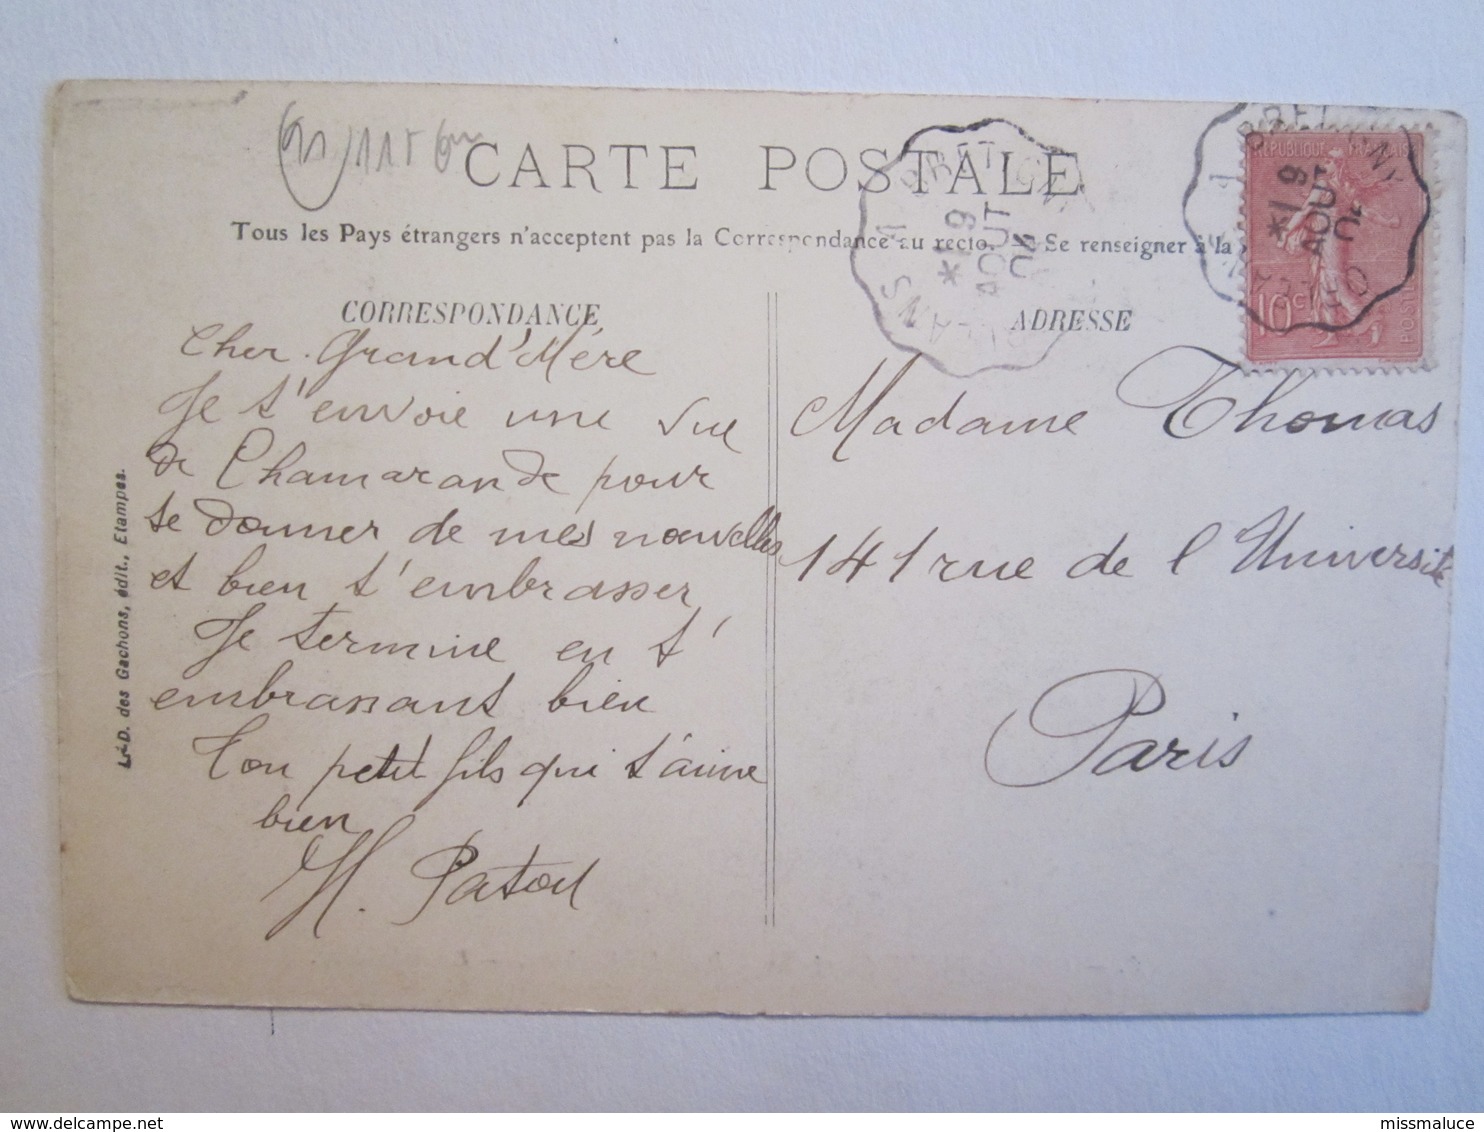 CARTE POSTALE
Tous les Pays étrangers n'acceptent pas la Correspondance au recto. Se renseigner à la
CORRESPONDANCE
Cher Grand'Mére
Je t'envoie une vue
de Chamarande pour
te donner de mes nouvelles
et bien t'embrasser
Je termine en t'
embrassant bien
Ton petit fils qui t'aime
bien
H.
ADRESSE
Madame Thomas
141 rue de l'Université
Paris
L.-D. des Gachons, édit., Etampes.
*19
AOUT
04
REPUBLIQUE FRANÇAISE
10c
POSTES
*19
AOUT
04
missmaluce